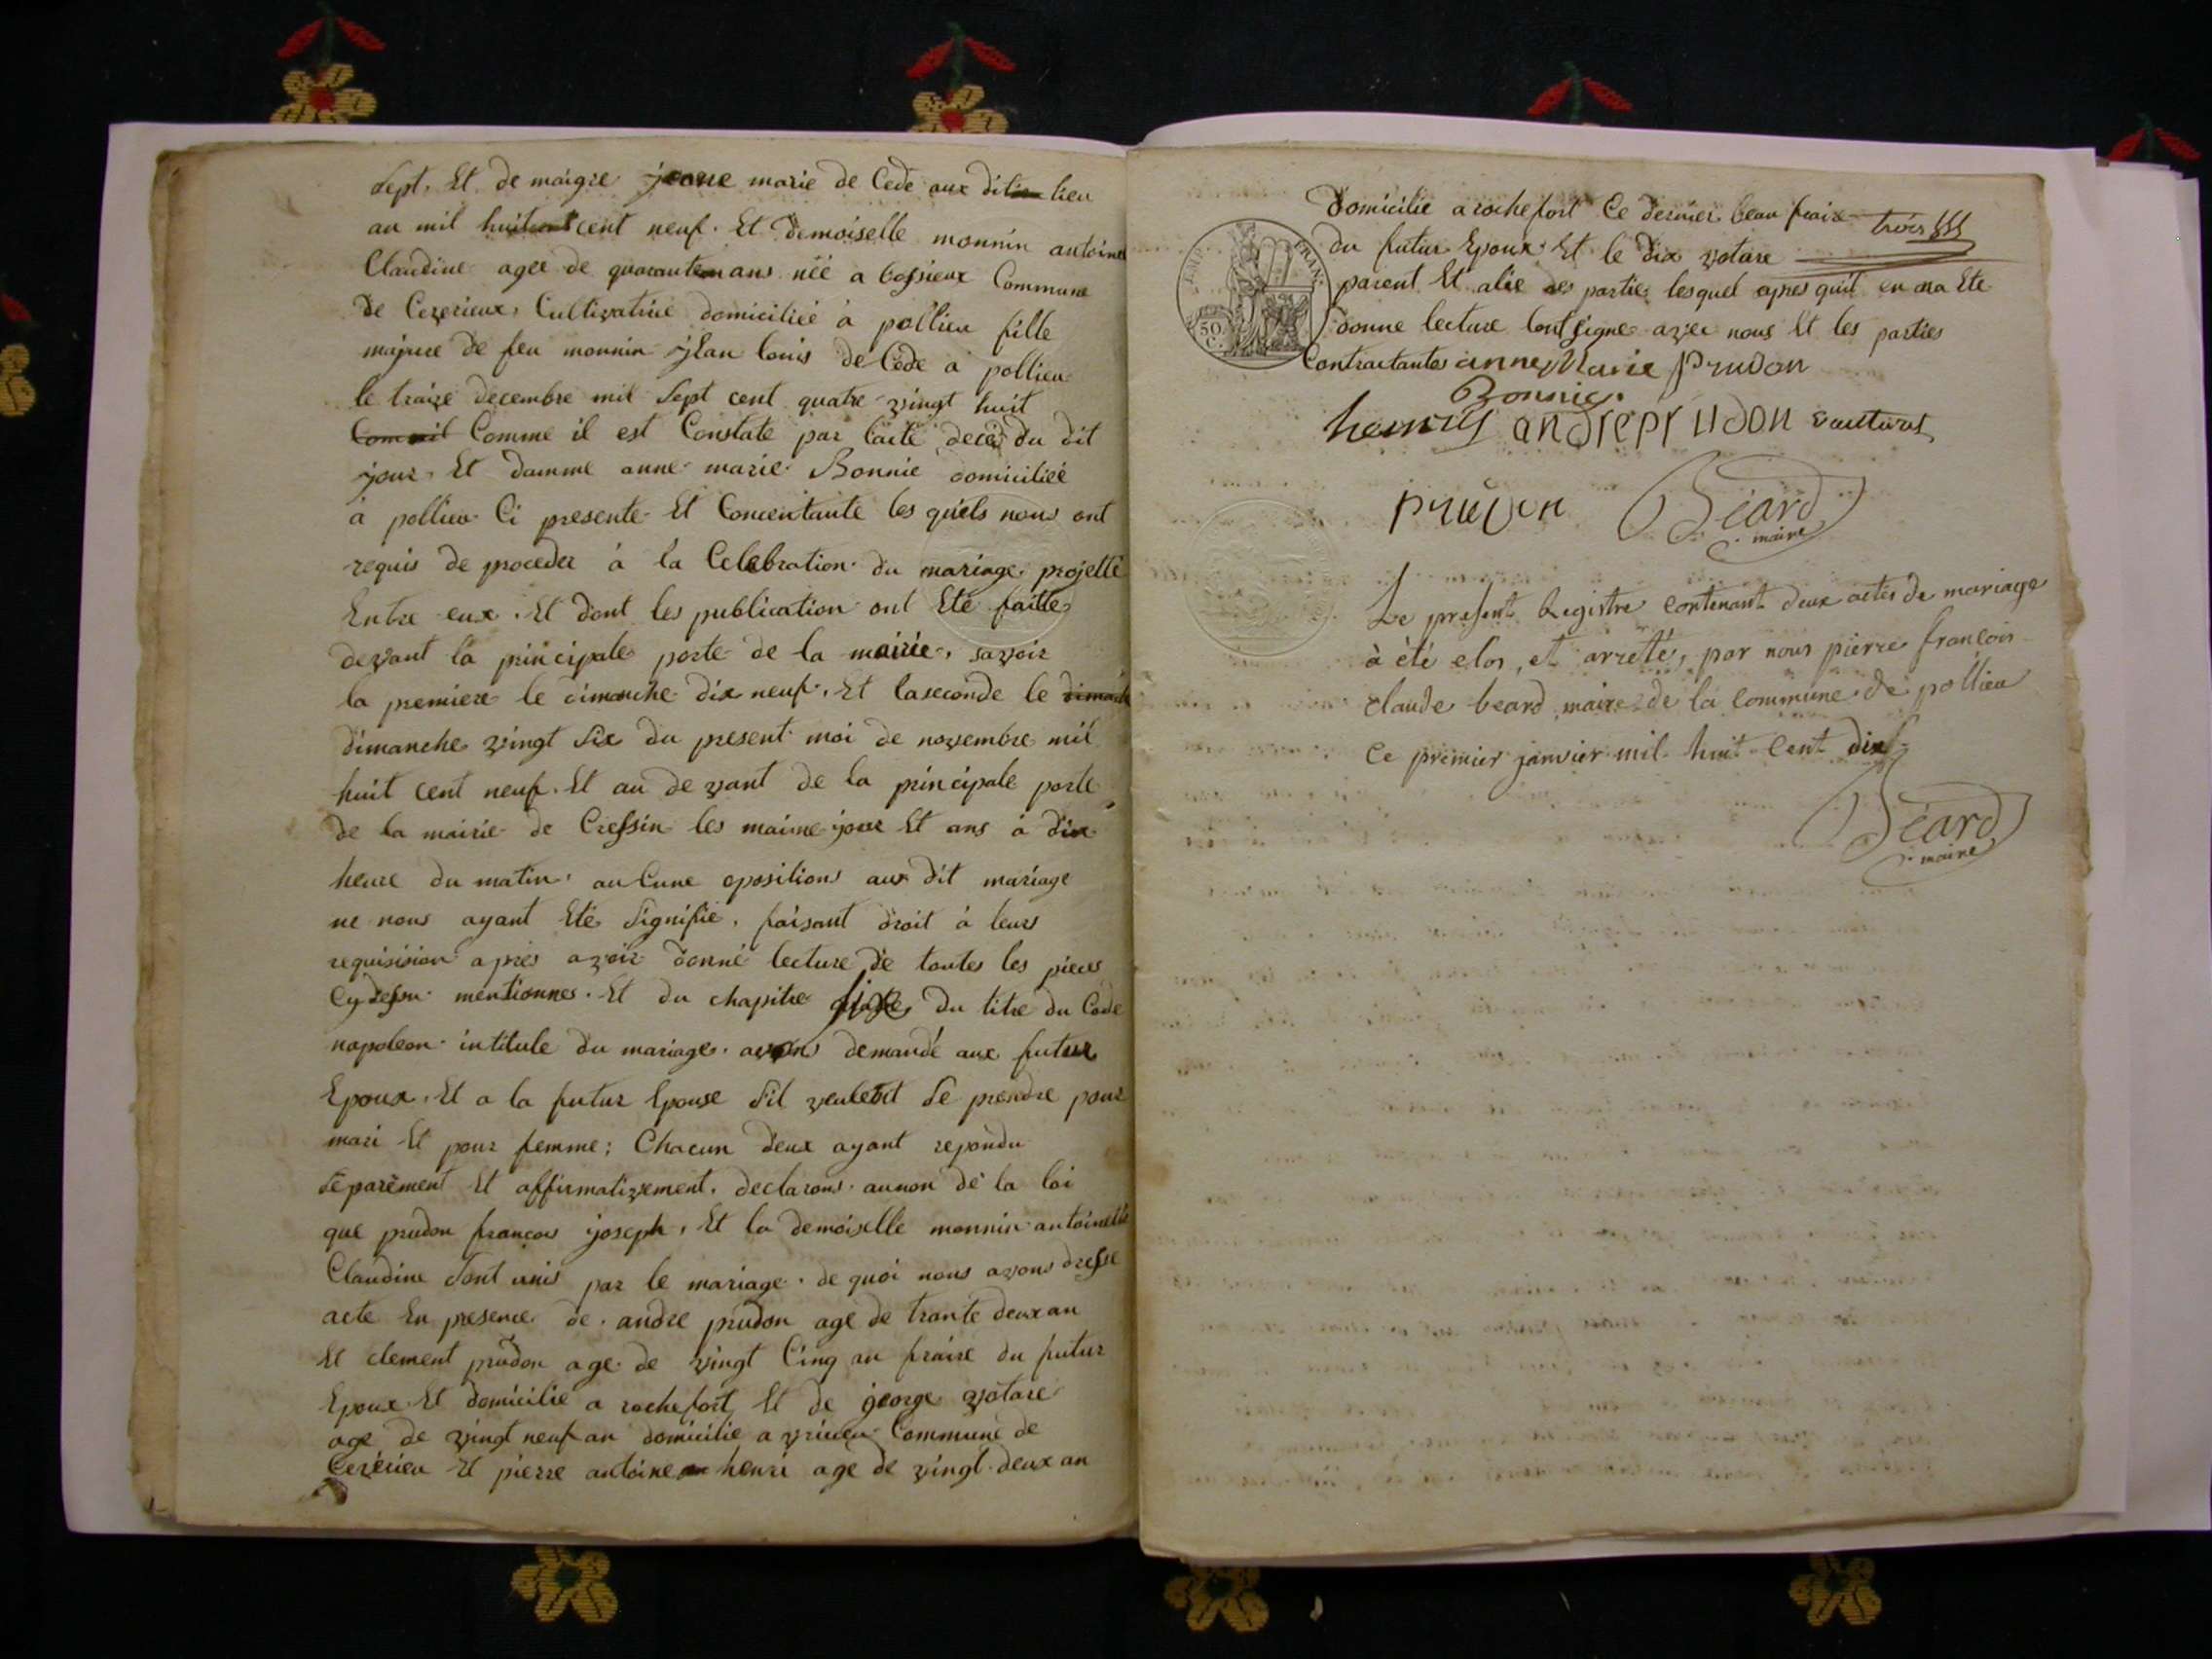 Sept. Et de maigre jeane marie de Cede aux dit lieu
an mil huit cent neuf. Et demoiselle monnin antoinett
Claudine agee de quarante ans néé a bossieux Commune
De Cezerieux, Cultivatrice domiciliéé à pollieu fille
majure de feu monnin jean louis de Cede a pollieu
le traize decembre mil Sept cent quatre vingt huit
Comme il est Constate par lacte decé du dit
jour. Et damme anne marie Bonnie domiciliéé
à pollieu Ci presente Et Concentante les quels nous ont
requis de proceder à la Celebration du mariage projetté
Entre eux. Et dont les publication ont Eté faitte
devant la principale porte de la mairie, savoir
la premiere le dimanche dix neuf. Et laseconde le dimanche
dimanche vingt Six du present moi de novembre mil
huit cent neuf. Et au devant de la principale porte
de la mairie de Cressin les maime jour Et ans à dix
heure du matin. auCune opositions aux dit mariage
ne nous ayant Eté Signifié. faisant droit à leurs
requisision apres avoir donné lecture de toutes les pieces
Cydessu mentionnes. Et du chapitre Sixe, du titre du Code
napoleon intitule du mariage. avons demandé aux futur
Epoux. Et a la futur Epouse Sil veulent Se prendre pour
mari Et pour femme; Chacun deux ayant repondu
Séparément Et affirmativement. declarons aunon de la loi
que prudon francois joseph. Et la demoiselle monnin antoinette
Claudine Sont unis par le mariage. de quoi nous avons dressé
acte En presence de. andre prudon age de trante deux an
Et clement prudon age de vingt Cinq an fraire du futur
Epoux Et domicilié a rochefort Et de george votare
age de vingt neuf an domicilie a vrieu Commune de
Cezérieu Et pierre antoine henri age de vingt deux an
Domicilie a rochefort Ce dernier beau fraire trois
du futur Epoux Et le dix votare
parent Et alié des partie lesquel apres quil en ona Ete
donne lecture lont signe avec nous Et les parties
Contractantes anne Marie prudon
Bonnie.
henry andreprudon
prudon Béard
maire
Le present Registre contenant deux actes de mariage
à été clos, et arreté, par nous pierre françois
claude beard maire de la commune de pollieu
Ce premier janvier mil huit Cent dix
Béard
maire
EMP. FRAN.
50.
C.